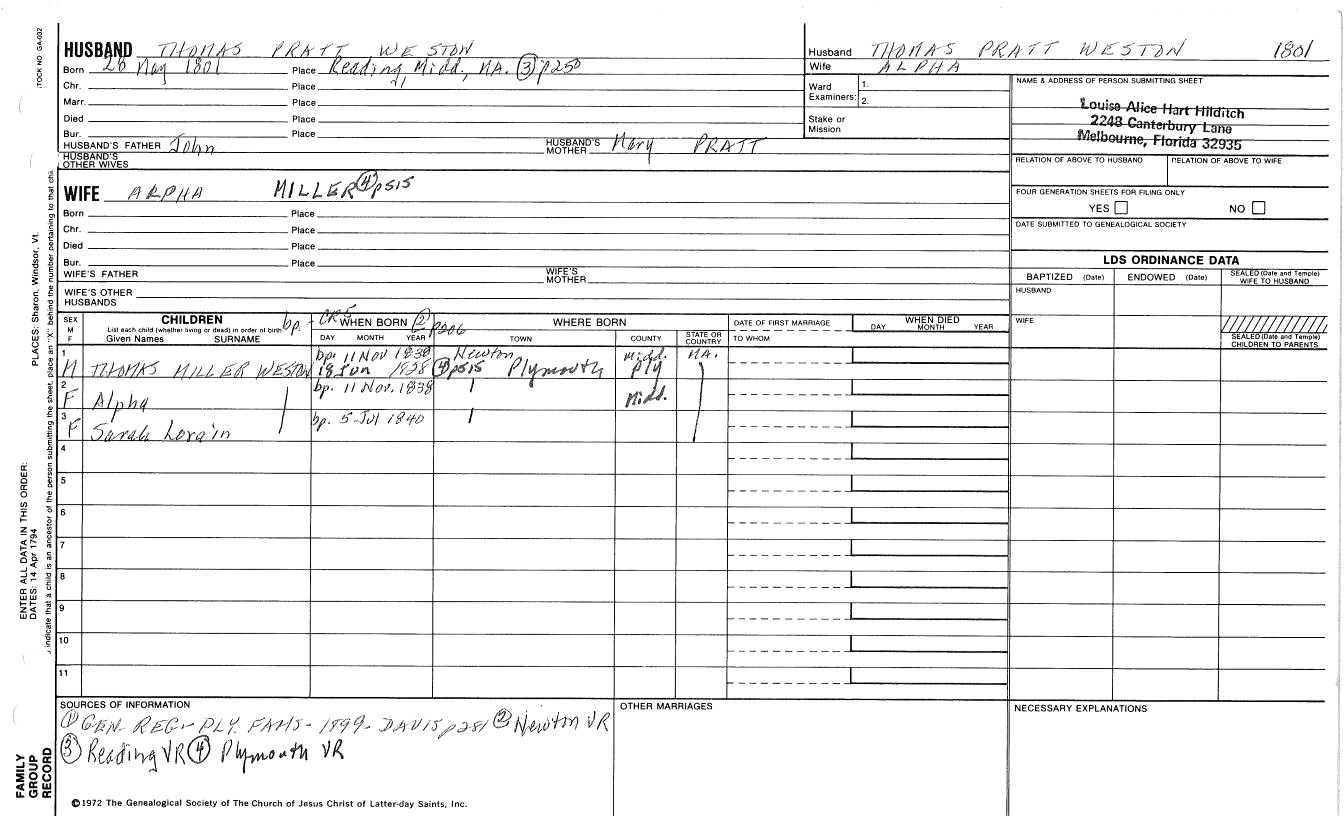 HUSBAND THOMAS PRATT WESTON
Born 28 May 1801 Place Reading, Midd, MA. ③ p250
Chr. Place
Marr. Place
Died Place
Bur. Place
HUSBAND'S FATHER John HUSBAND'S MOTHER Mary PRATT
HUSBAND'S OTHER WIVES
Husband THOMAS PRATT WESTON 1801
Wife ALPHA
Ward Examiners: 1.
2.
Stake or Mission
NAME & ADDRESS OF PERSON SUBMITTING SHEET
Louise Alice Hart Hilditch
2248 Canterbury Lane
Melbourne, Florida 32935
RELATION OF ABOVE TO HUSBAND RELATION OF ABOVE TO WIFE
FOUR GENERATION SHEETS FOR FILING ONLY
YES NO
DATE SUBMITTED TO GENEALOGICAL SOCIETY
WIFE ALPHA MILLER ④ p515
Born Place
Chr. Place
Died Place
Bur. Place
WIFE'S FATHER WIFE'S MOTHER
WIFE'S OTHER HUSBANDS
LDS ORDINANCE DATA
BAPTIZED (Date) ENDOWED (Date) SEALED (Date and Temple) WIFE TO HUSBAND
HUSBAND
WIFE
SEALED (Date and Temple) CHILDREN TO PARENTS
SEX M F
CHILDREN
List each child (whether living or dead) in order of birth
Given Names SURNAME
bp - CR5 ② p206
WHEN BORN
DAY MONTH YEAR
WHERE BORN
TOWN COUNTY STATE OR COUNTRY
DATE OF FIRST MARRIAGE
TO WHOM
WHEN DIED
DAY MONTH YEAR
1 bp. 11 Nov 1838 Newton Midd. MA.
M THOMAS MILLER WESTON 18 Jun 1828 ④ p515 Plymouth Ply
2 bp. 11 Nov. 1838
F Alpha Midd.
3 bp. 5 Jul 1840
F Sarah Lorain
4
5
6
7
8
9
10
11
SOURCES OF INFORMATION
① GEN. REG - PLY. FAMS - 1899 - DAVIS p281 ② Newton VR
③ Reading VR ④ Plymouth VR
OTHER MARRIAGES
NECESSARY EXPLANATIONS
©1972 The Genealogical Society of The Church of Jesus Christ of Latter-day Saints, Inc.
FAMILY GROUP RECORD
ENTER ALL DATA IN THIS ORDER:
DATES: 14 Apr 1794
PLACES: Sharon, Windsor, Vt.
indicate that a child is an ancestor of the person submitting the sheet, place an "X" behind the number pertaining to that chi
TOCK NO GA-032